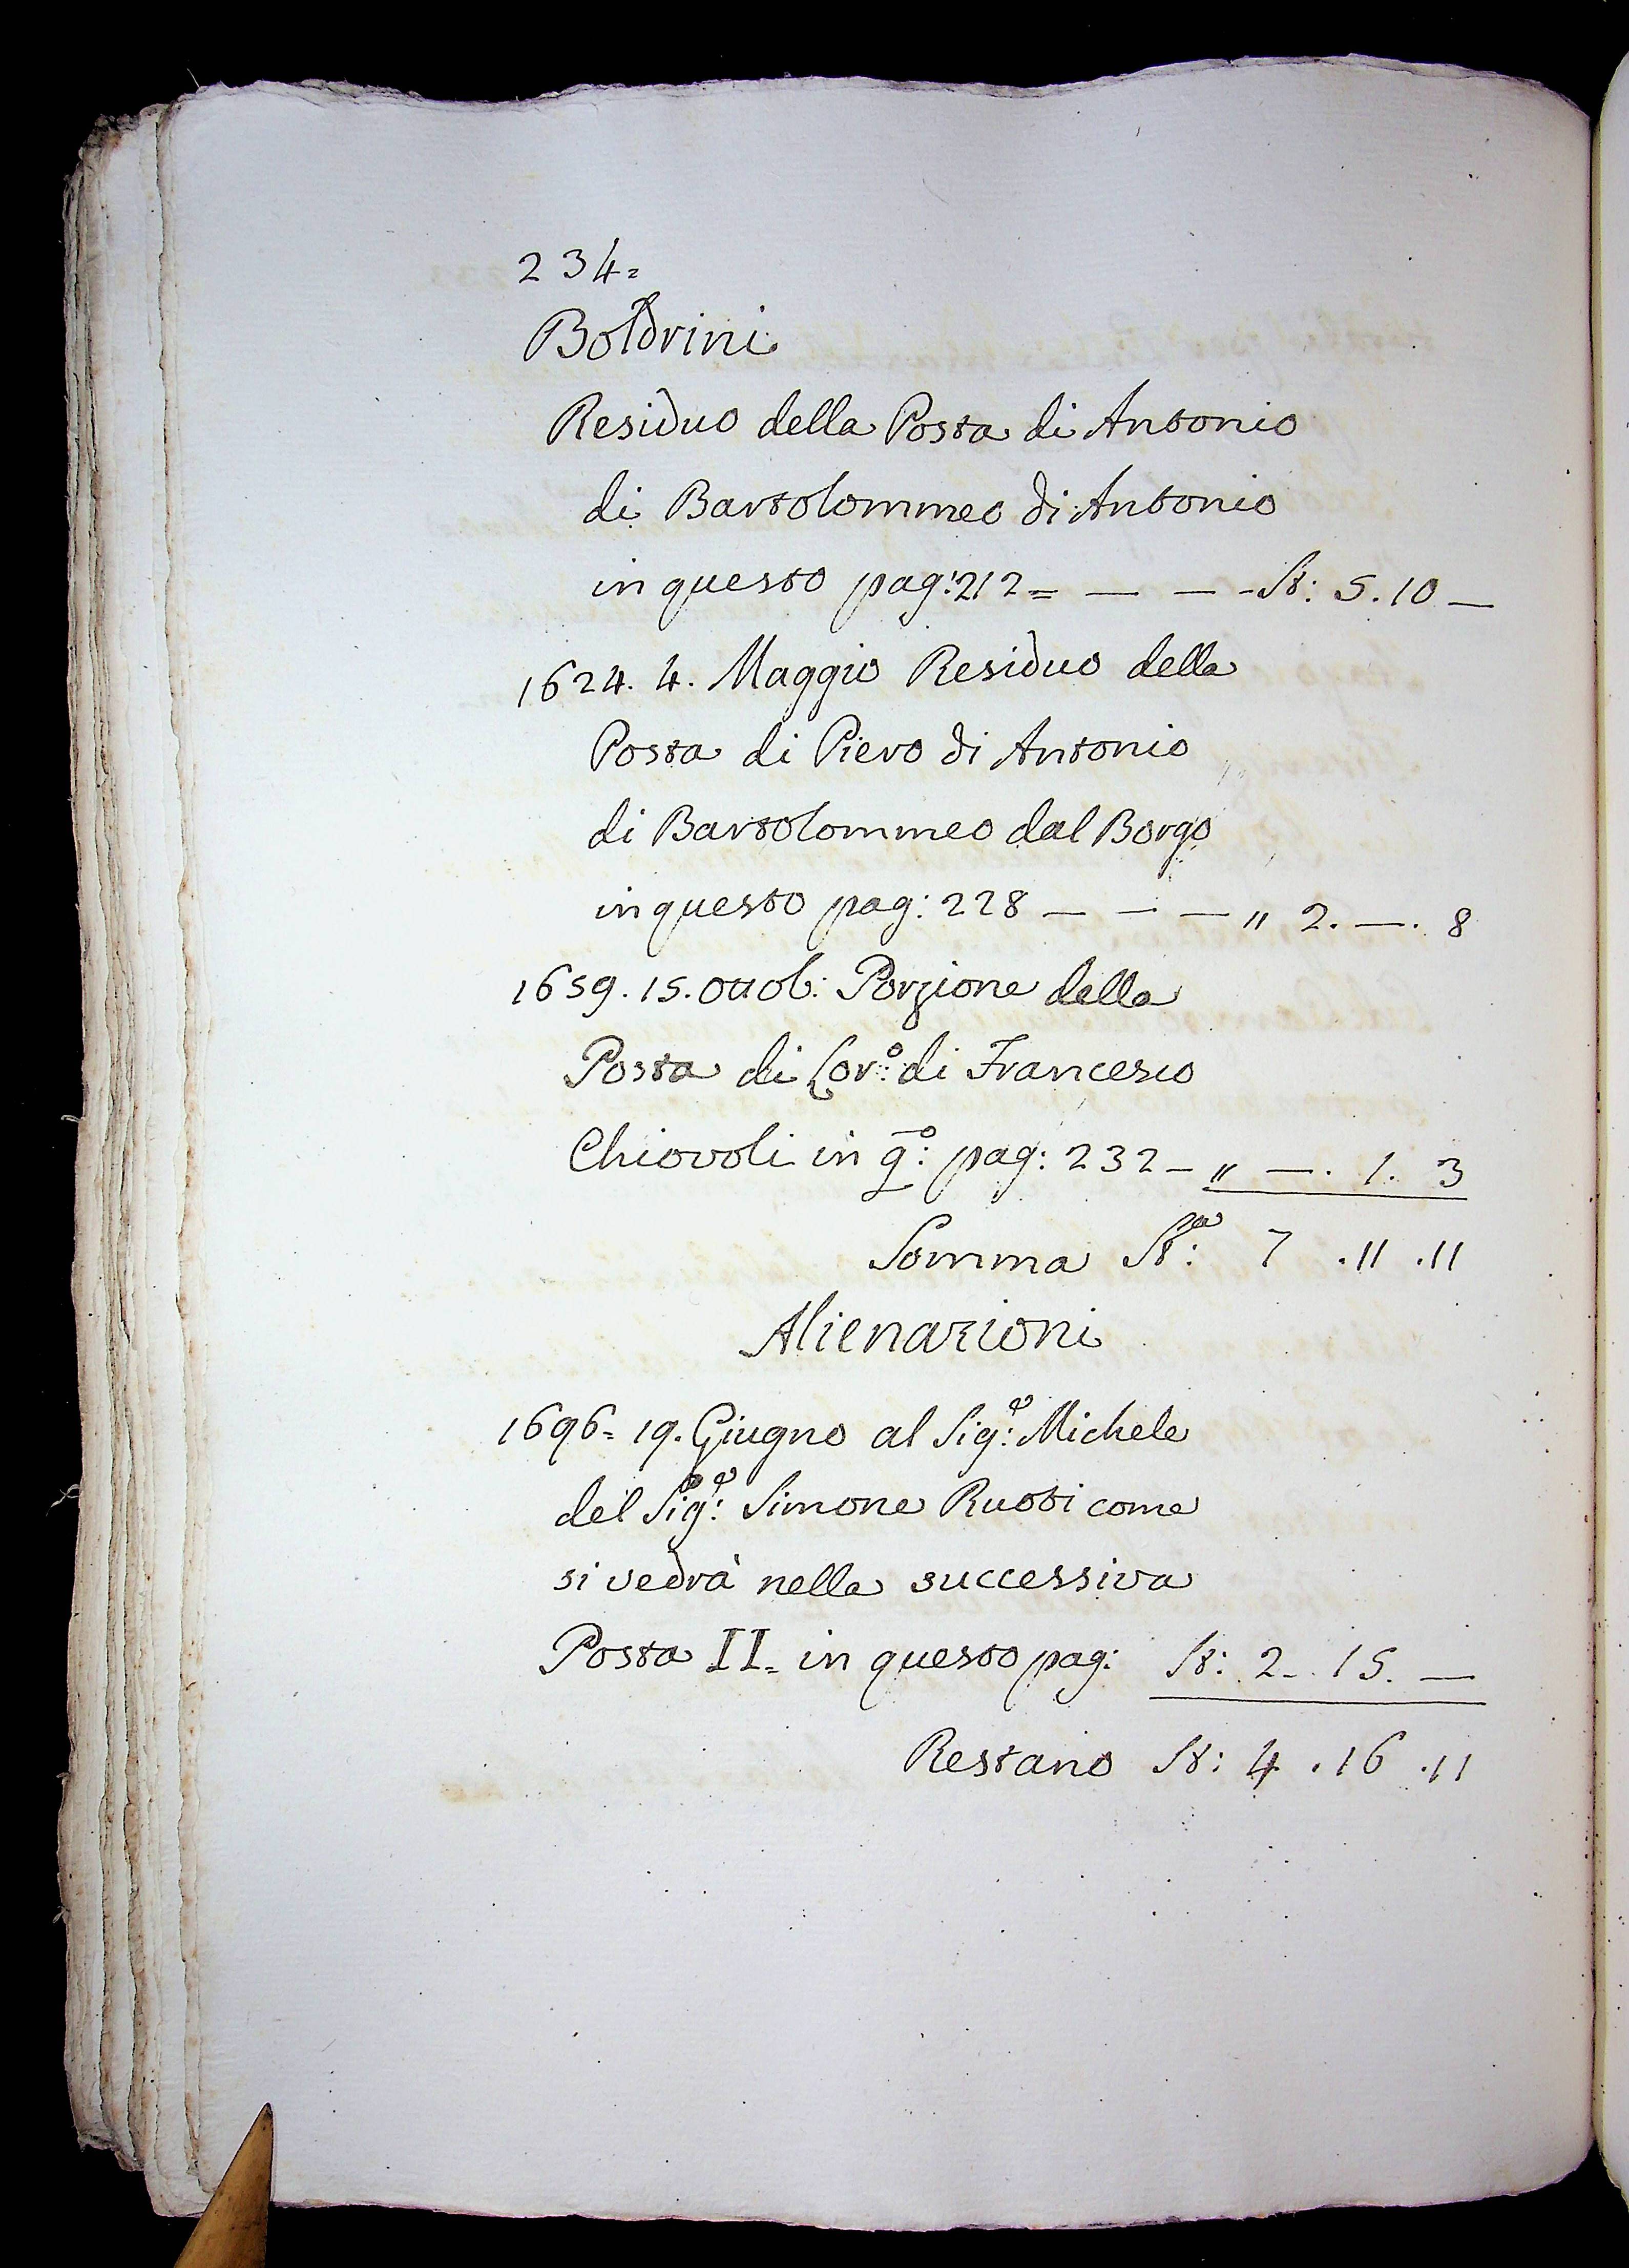 234=
Boldrini
Residuo della Posta di Antonio
di Bartolommeo di Antonio
in questo pag: 212 = — — - St: 5. 10 —
1624. 4. Maggio Residuo della
Posta di Piero di Antonio
di Bartolommeo dal Borgo
in questo pag: 228 — — — " 2. —. 8
1659. 15. Ottob: Porzione della
Posta di Lor:º di Francesco
Chiovoli in q:º pag: 232 - " —. 1. 3
Somma St:ª 7 .11 .11
Alienazioni
1696= 19. Giugno al Sig:e Michele
del Sig:e Simone Ruoti come
si vedrà nella successiva
Posta II= in questo pag: St: 2. 15. —
Restano St: 4 .16 .11